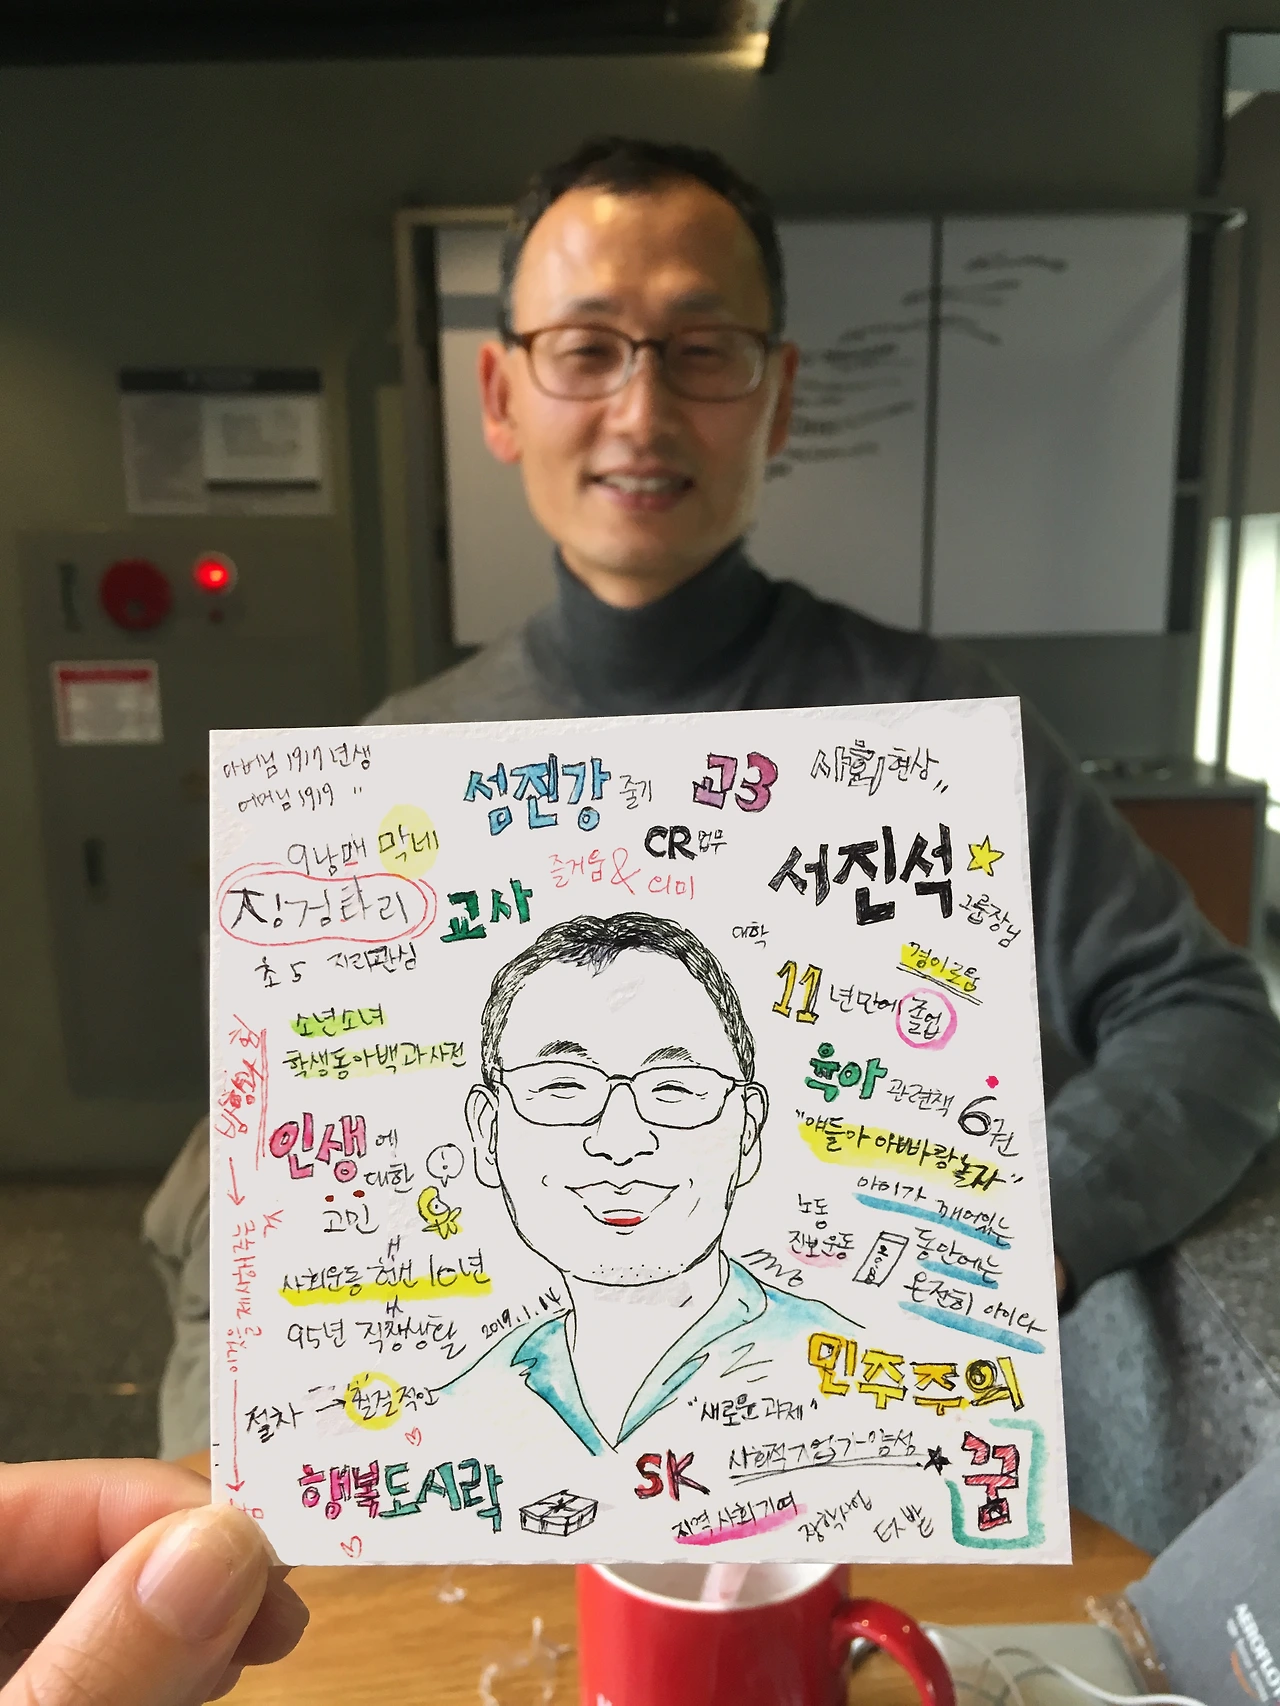 아버님 1917년생
어머님 1919 "
9남매 막내
징검다리
초5 지리관심
소년소녀
학생동아백과사전
인생에
대한
고민
사회운동 헌신 10년
95년 직장생활
2019.1.14
절차 →
행복도시락
섬진강 줄기
고3
사회현상,,
CR업무
즐거움 & 의미
교사
서진석
그룹장님
대학
경이로움
11년만에 졸업
육아 관련책 6권
"얘들아 아빠랑 놀자"
아이가 깨어있는
동안에는
온전히 아이다
노동
진보운동
민주주의
"새로운 과제"
SK
사회적기업가 양성
꿈
지역사회기여
장학사업
텃밭
AEROFLOT